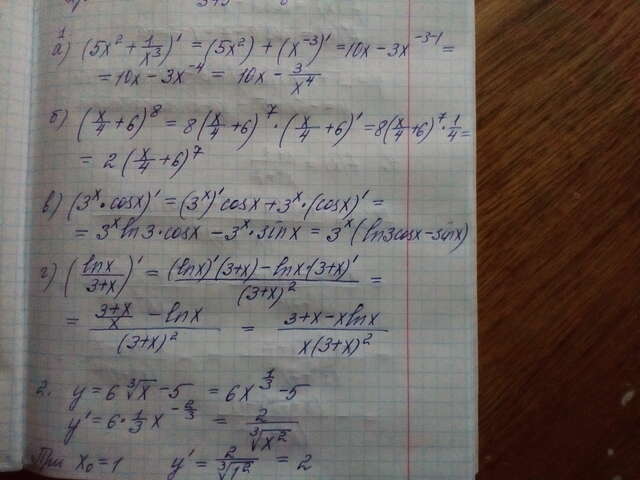 1
а) (5x² + 1/x³)' = (5x²) + (x⁻³)' = 10x - 3x⁻³⁻¹ =
= 10x - 3x⁻⁴ = 10x - 3/x⁴
б) (x/4 + 6)⁸ = 8(x/4 + 6)⁷ · (x/4 + 6)' = 8(x/4 + 6)⁷ · 1/4 =
= 2(x/4 + 6)⁷
в) (3ˣ · cosx)' = (3ˣ)' cosx + 3ˣ · (cosx)' =
= 3ˣ ln3 · cosx - 3ˣ · sinx = 3ˣ (ln3cosx - sinx)
г) (lnx/(3+x))' = ((lnx)'(3+x) - lnx·(3+x)')/(3+x)² =
= ((3+x)/x - lnx)/(3+x)² = (3+x-xlnx)/(x(3+x)²)
2. y = 6∛x - 5 = 6x^(1/3) - 5
y' = 6 · 1/3 x^(-2/3) = 2/∛x²
При x₀ = 1 y' = 2/∛1² = 2